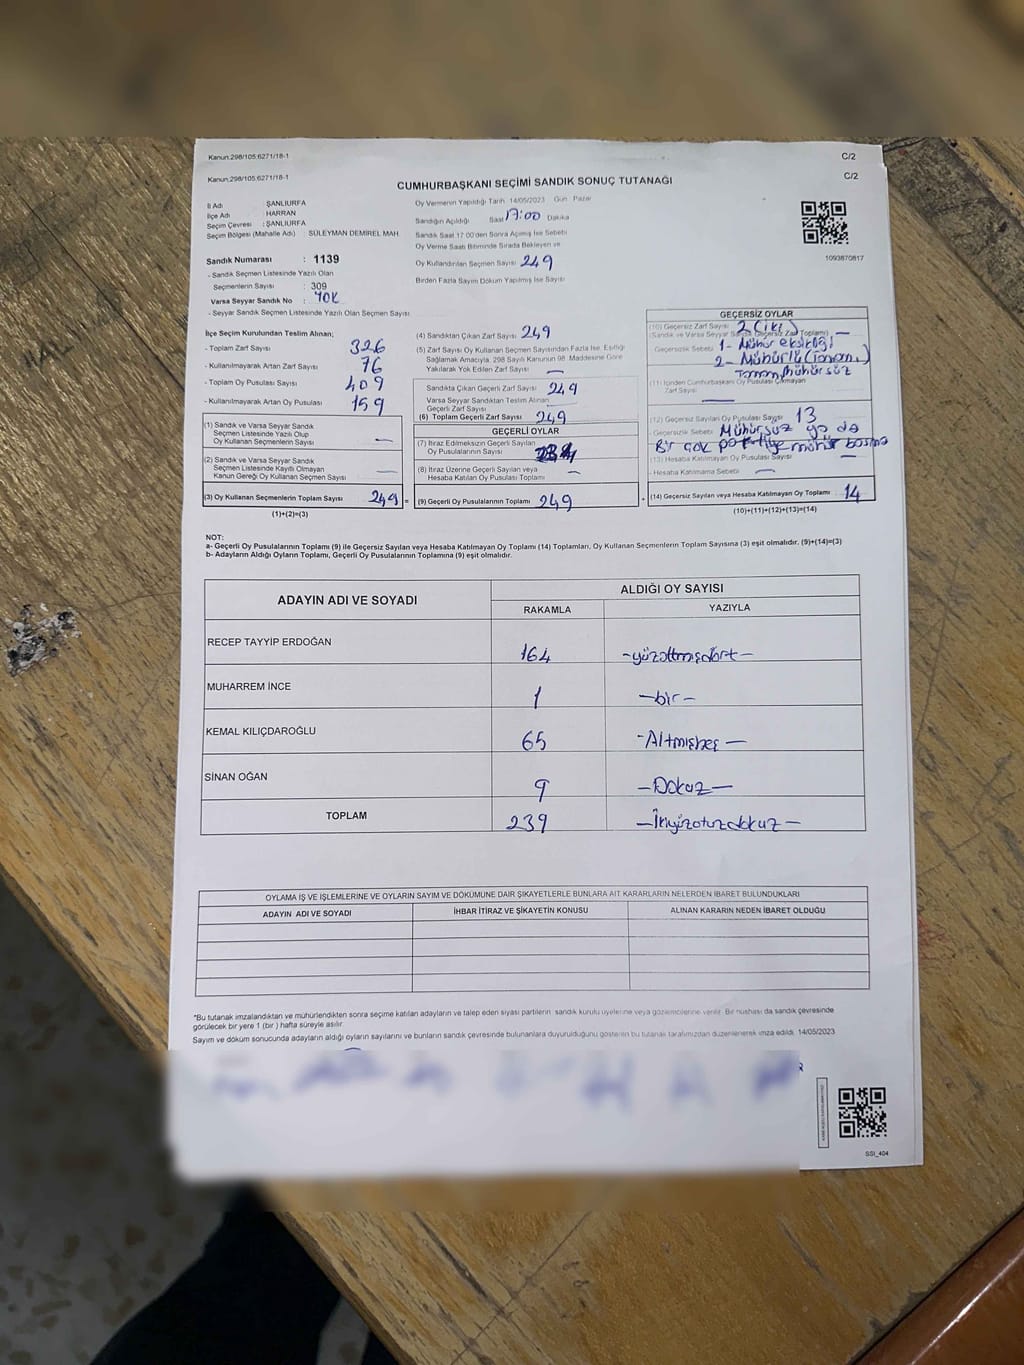 Kanun:298/105;6271/18-1
C/2
Kanun:298/105;6271/18-1
C/2
CUMHURBAŞKANI SEÇİMİ SANDIK SONUÇ TUTANAĞI
İl Adı : ŞANLIURFA
İlçe Adı : HARRAN
Seçim Çevresi : ŞANLIURFA
Seçim Bölgesi (Mahalle Adı) : SÜLEYMAN DEMİREL MAH.
Sandık Numarası : 1139
- Sandık Seçmen Listesinde Yazılı Olan
Seçmenlerin Sayısı : 309
Varsa Seyyar Sandık No : YOK
- Seyyar Sandık Seçmen Listesinde Yazılı Olan Seçmen Sayısı
Oy Vermenin Yapıldığı Tarih 14/05/2023 Gün Pazar
Sandığın Açıldığı Saat 17:00 Dakika
Sandık Saat 17.00'den Sonra Açılmış İse Sebebi
Oy Verme Saati Bitiminde Sırada Bekleyen ve
Oy Kullandırılan Seçmen Sayısı 249
Birden Fazla Sayım Döküm Yapılmış İse Sayısı
1093870817
İlçe Seçim Kurulundan Teslim Alınan;
- Toplam Zarf Sayısı 326
- Kullanılmayarak Artan Zarf Sayısı 76
- Toplam Oy Pusulası Sayısı 409
- Kullanılmayarak Artan Oy Pusulası 159
(1) Sandık ve Varsa Seyyar Sandık
Seçmen Listesinde Yazılı Olup
Oy Kullanan Seçmenlerin Sayısı —
(2) Sandık ve Varsa Seyyar Sandık
Seçmen Listesinde Kayıtlı Olmayan
Kanun Gereği Oy Kullanan Seçmen Sayısı —
(3) Oy Kullanan Seçmenlerin Toplam Sayısı 249 =
(1)+(2)=(3)
(4) Sandıktan Çıkan Zarf Sayısı 249
(5) Zarf Sayısı Oy Kullanan Seçmen Sayısından Fazla İse, Eşitliği
Sağlamak Amacıyla, 298 Sayılı Kanunun 98. Maddesine Göre
Yakılarak Yok Edilen Zarf Sayısı —
Sandıkta Çıkan Geçerli Zarf Sayısı 249
Varsa Seyyar Sandıktan Teslim Alınan
Geçerli Zarf Sayısı
(6) Toplam Geçerli Zarf Sayısı 249
GEÇERLİ OYLAR
(7) İtiraz Edilmeksizin Geçerli Sayılan
Oy Pusulası Sayısı
(8) İtiraz Üzerine Geçerli Sayılan veya
Hesaba Katılan Oy Pusulası Toplamı —
(9) Geçerli Oy Pusulalarının Toplamı 249 +
GEÇERSİZ OYLAR
(10) Geçersiz Zarf Sayısı 2 (iki)
(Sandık ve Varsa Seyyar Sandık Geçersiz Zarf Toplamı) —
Geçersizlik Sebebi 1- Mühür eksikliği
2- Mühürlü
Tamamı Mühürsüz
(11) İçinden Cumhurbaşkanı Oy Pusulası Çıkmayan
Zarf Sayısı —
(12) Geçersiz Sayılan Oy Pusulası Sayısı 13
- Geçersizlik Sebebi Mühürsüz ya da
Bir çok partiye mühür basma
(13) Hesaba Katılmayan Oy Pusulası Sayısı —
- Hesaba Katılmama Sebebi —
(14) Geçersiz Sayılan veya Hesaba Katılmayan Oy Toplamı 14
(10)+(11)+(12)+(13)=(14)
NOT:
a- Geçerli Oy Pusulalarının Toplamı (9) ile Geçersiz Sayılan veya Hesaba Katılmayan Oy Toplamı (14) Toplamları, Oy Kullanan Seçmenlerin Toplam Sayısına (3) eşit olmalıdır. (9)+(14)=(3)
b- Adayların Aldığı Oyların Toplamı, Geçerli Oy Pusulalarının Toplamına (9) eşit olmalıdır.
ADAYIN ADI VE SOYADI
ALDIĞI OY SAYISI
RAKAMLA YAZIYLA
RECEP TAYYİP ERDOĞAN 164 -yüzaltmışdört-
MUHARREM İNCE 1 -bir-
KEMAL KILIÇDAROĞLU 65 -Altmışbeş-
SİNAN OĞAN 9 -Dokuz-
TOPLAM 239 -İkiyüzotuzdokuz-
OYLAMA İŞ VE İŞLEMLERİNE VE OYLARIN SAYIM VE DÖKÜMÜNE DAİR ŞİKAYETLERLE BUNLARA AİT KARARLARIN NELERDEN İBARET BULUNDUKLARI
ADAYIN ADI VE SOYADI İHBAR İTİRAZ VE ŞİKAYETİN KONUSU ALINAN KARARIN NEDEN İBARET OLDUĞU
*Bu tutanak imzalandıktan ve mühürlendikten sonra seçime katılan adayların ve talep eden siyasi partilerin sandık kurulu üyelerine veya gözlemcilerine verilir. Bir nüshası da sandık çevresinde
görülecek bir yere 1 (bir) hafta süreyle asılır.
Sayım ve döküm sonucunda adayların aldığı oyların sayılarını ve bunların sandık çevresinde bulunanlara duyurulduğunu gösteren bu tutanak tarafımızdan düzenlenerek imza edildi. 14/05/2023
SSI_404